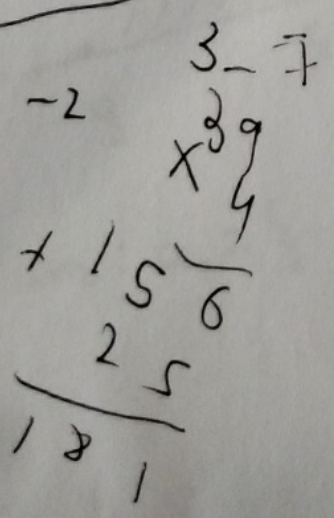 3 - 7
-2
39
× 4
+ 156
25
181